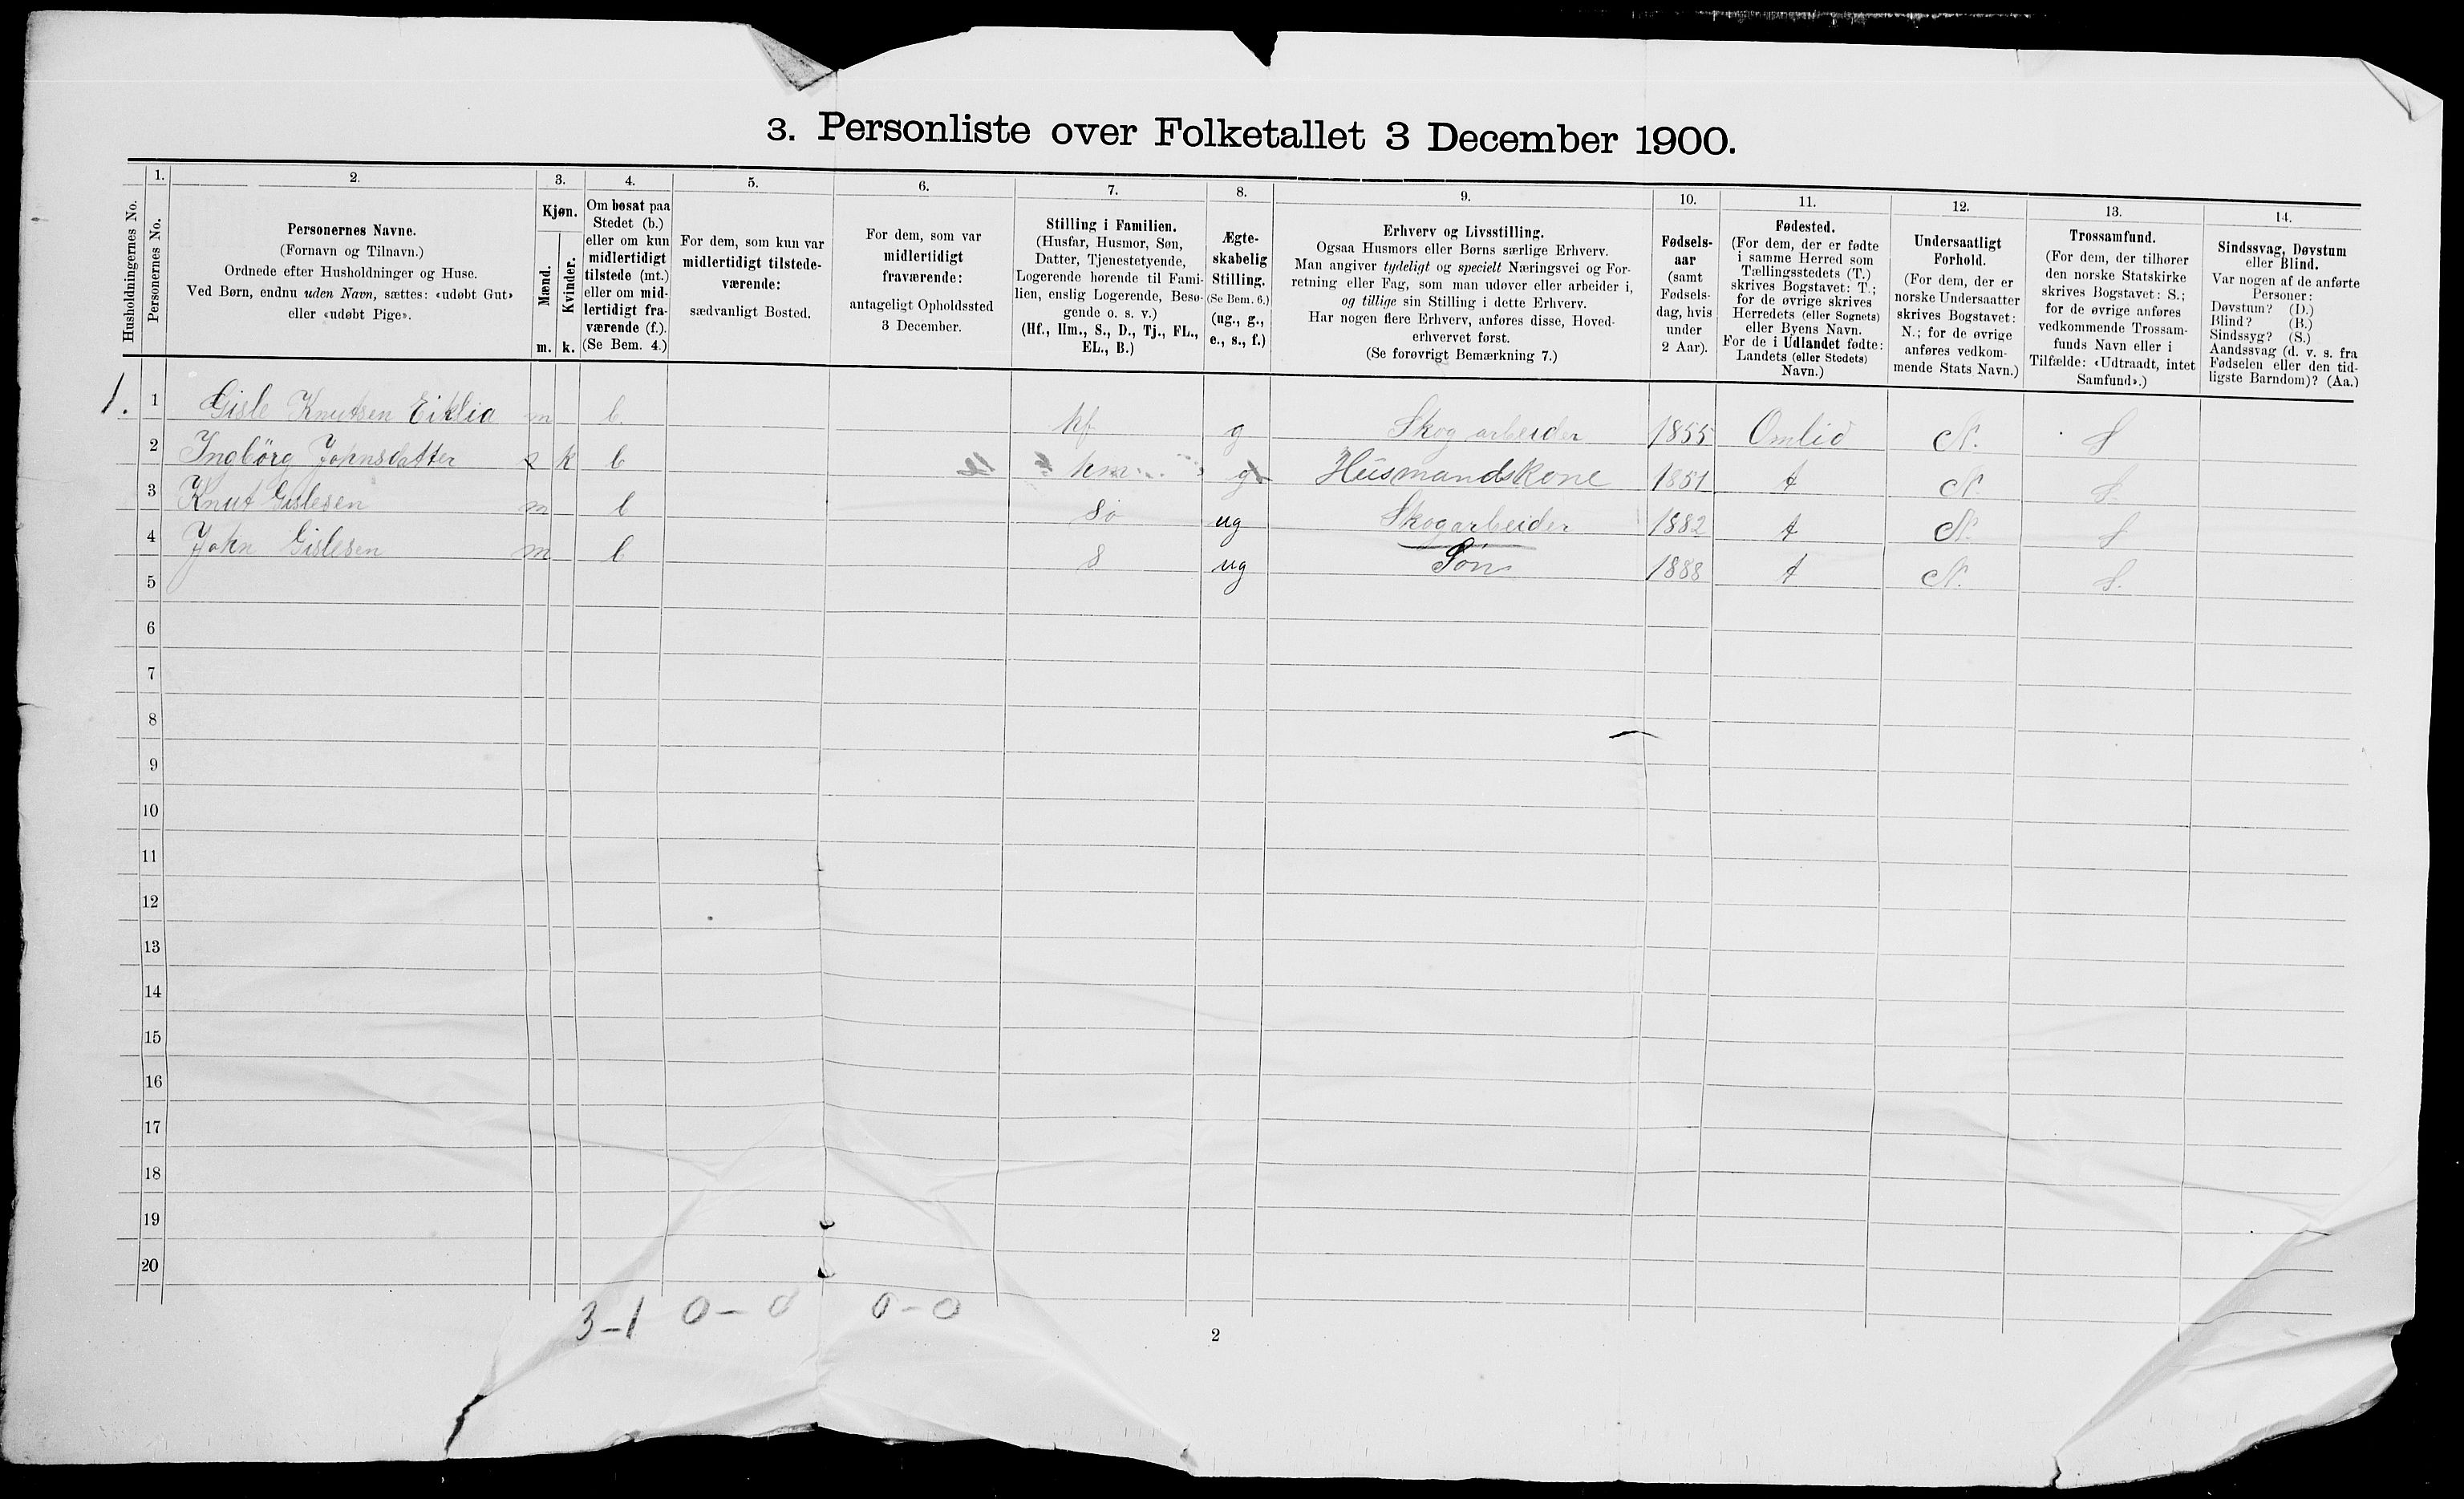 3. Personliste over Folketallet 3 December 1900.
1. 2. 3. 4. 5. 6. 7. 8. 9. 10. 11. 12. 13. 14.
Husholdningernes No.
Personernes No.
Personernes Navne.
(Fornavn og Tilnavn.)
Ordnede efter Husholdninger og Huse.
Ved Børn, endnu uden Navn, sættes: «udøbt Gut»
eller «udøbt Pige».
Kjøn.
Mænd.
Kvinder.
m. k.
Om bosat paa
Stedet (b.)
eller om kun
midlertidigt
tilstede (mt.)
eller om mid-
lertidigt fra-
værende (f.).
(Se Bem. 4.)
For dem, som kun var
midlertidigt tilstede-
værende:
sædvanligt Bosted.
For dem, som var
midlertidigt
fraværende:
antageligt Opholdssted
3 December.
Stilling i Familien.
(Husfar, Husmor, Søn,
Datter, Tjenestetyende,
Logerende hørende til Fami-
lien, enslig Logerende, Besø-
gende o. s. v.)
(Hf., Hm., S., D., Tj., FL.,
EL., B.)
Ægte-
skabelig
Stilling.
(Se Bem. 6.)
(ug., g.,
e., s., f.)
Erhverv og Livsstilling.
Ogsaa Husmors eller Børns særlige Erhverv.
Man angiver tydeligt og specielt Næringsvei og For-
retning eller Fag, som man udøver eller arbeider i,
og tillige sin Stilling i dette Erhverv.
Har nogen flere Erhverv, anføres disse, Hoved-
erhvervet først.
(Se forøvrigt Bemærkning 7.)
Fødsels-
aar
(samt
Fødsels-
dag, hvis
under
2 Aar).
Fødested.
(For dem, der er fødte
i samme Herred som
Tællingsstedets (T.)
skrives Bogstavet: T.;
for de øvrige skrives
Herredets (eller Sognets)
eller Byens Navn.
For de i Udlandet fødte:
Landets (eller Stedets)
Navn.)
Undersaatligt
Forhold.
(For dem, der er
norske Undersaatter
skrives Bogstavet:
N.; for de øvrige
anføres vedkom-
mende Stats Navn.)
Trossamfund.
(For dem, der tilhører
den norske Statskirke
skrives Bogstavet: S.;
for de øvrige anføres
vedkommende Trossam-
funds Navn eller i
Tilfælde: «Udtraadt, intet
Samfund».)
Sindssvag, Døvstum
eller Blind.
Var nogen af de anførte
Personer:
Døvstum? (D.)
Blind? (B.)
Sindssyg? (S.)
Aandssvag (d. v. s. fra
Fødselen eller den tid-
ligste Barndom)? (Aa.)
1. 1 Gisle Knutsen Eiklid m b. hf g Skogarbeider 1855 Omlid N. S
2 Ingbörg Johnsdatter k b hm g Husmandskone 1851 t N. S.
3 Knut Gislesen m b so ug Skogarbeider 1882 t N. S
4 John Gislesen m b s ug Søn 1888 t N. S.
5
6
7
8
9
10
11
12
13
14
15
16
17
18
19
20
3-1 0-0 0-0
2